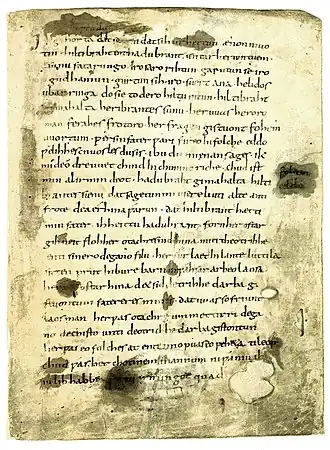 Ik gihorta đat seggen đat sih urhettun ænon muo
tin. hiltibraht enti hađubrant. untar heriun tuem.
sunu fatarungo. iro saro rihtun garutun se iro
guđhamun. gurtun sih. iro. suert ana. helidos
ubar ringa do sie to dero hiltu ritun. hiltibraht
gimahalta heribrantes sunu. her uuas heroro
man ferahes frotoro. her fragen gistuont fohem
uuortum. ƿer sin fater ƿari fireo in folche eddo
ƿelihhes cnuosles du sis. ibu du mi ęnan sages. ik
mi de odre uuet chind in chunninc riche. chud ist
min al irmin deot. hadubraht gimahalta hilti
brantes sunu dat sagetun mi usere liuti alte anti
frote dea erhina ƿarun. dat hiltibrant hætti
min fater. ih heittu hadubrant. forn her ostar
gihueit floh her otachres nid hina miti theotrihhe
enti sinero degano filu. her fur laet in lante luttila
sitten prut in bure barn unƿahsan arbeo laosa.
ostar hina d& sid d&rihhe darba gi
stuontun fateres mines. dat uuas so friunt
laos man her ƿas otachre ummett irri dega
no dechisto unti deotrichhe darba gistontun
her ƿas eo folches at ente imo ƿuas eo feh&a ti leop
chud ƿas her chonnem mannum ni ƿaniu ih
iu lib habbe irmingot quad